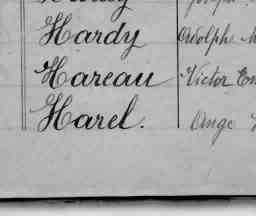 Hardy Adolphe
Hareau Victor
Harel. Ange